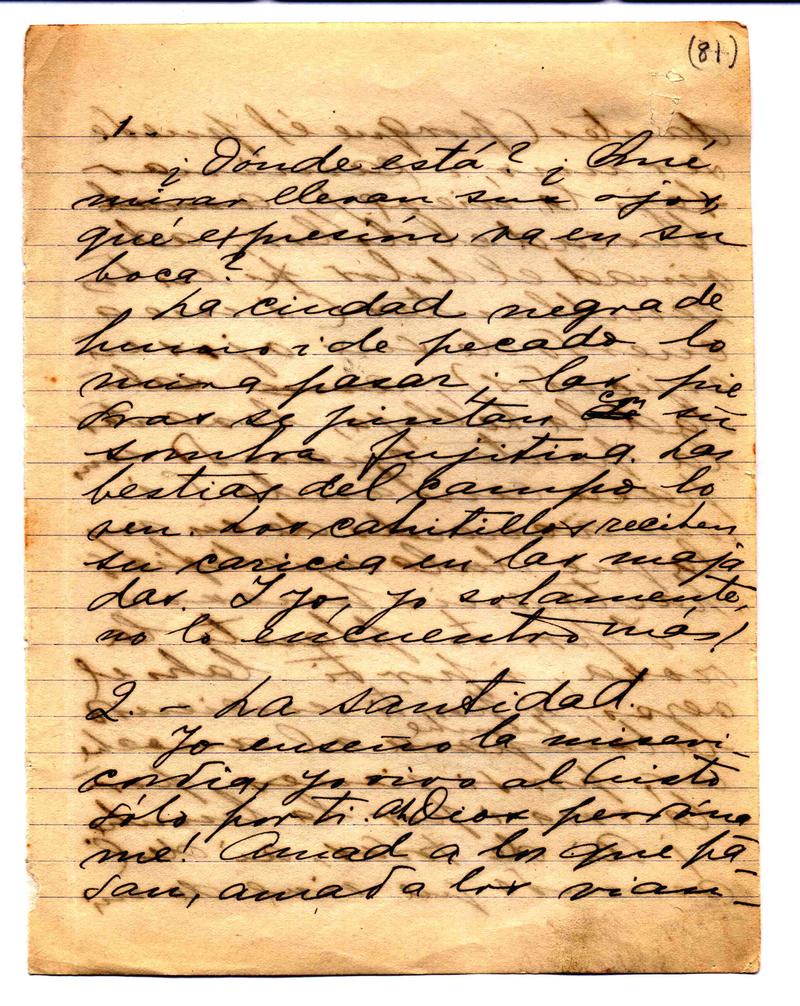 (81)
1.
¿Dónde está? ¿Qué
mirar llevan sus ojos,
qué expresión va en su
boca?
La ciudad negra de
humo i de pecado lo
mira pasar; las pie
dras se pintan con su
sombra fujitiva. Las
bestias del campo lo
ven. Los cabritillos reciben
su caricia en las maja
das. I yo, yo solamente,
no lo encuentro más!
2. – La santidad.
Yo enseño la miseri-
cordia, yo vivo al Cristo
sólo por ti. Ah Dios perdóna
me! Amad a los que pa
san, amad a los vian-